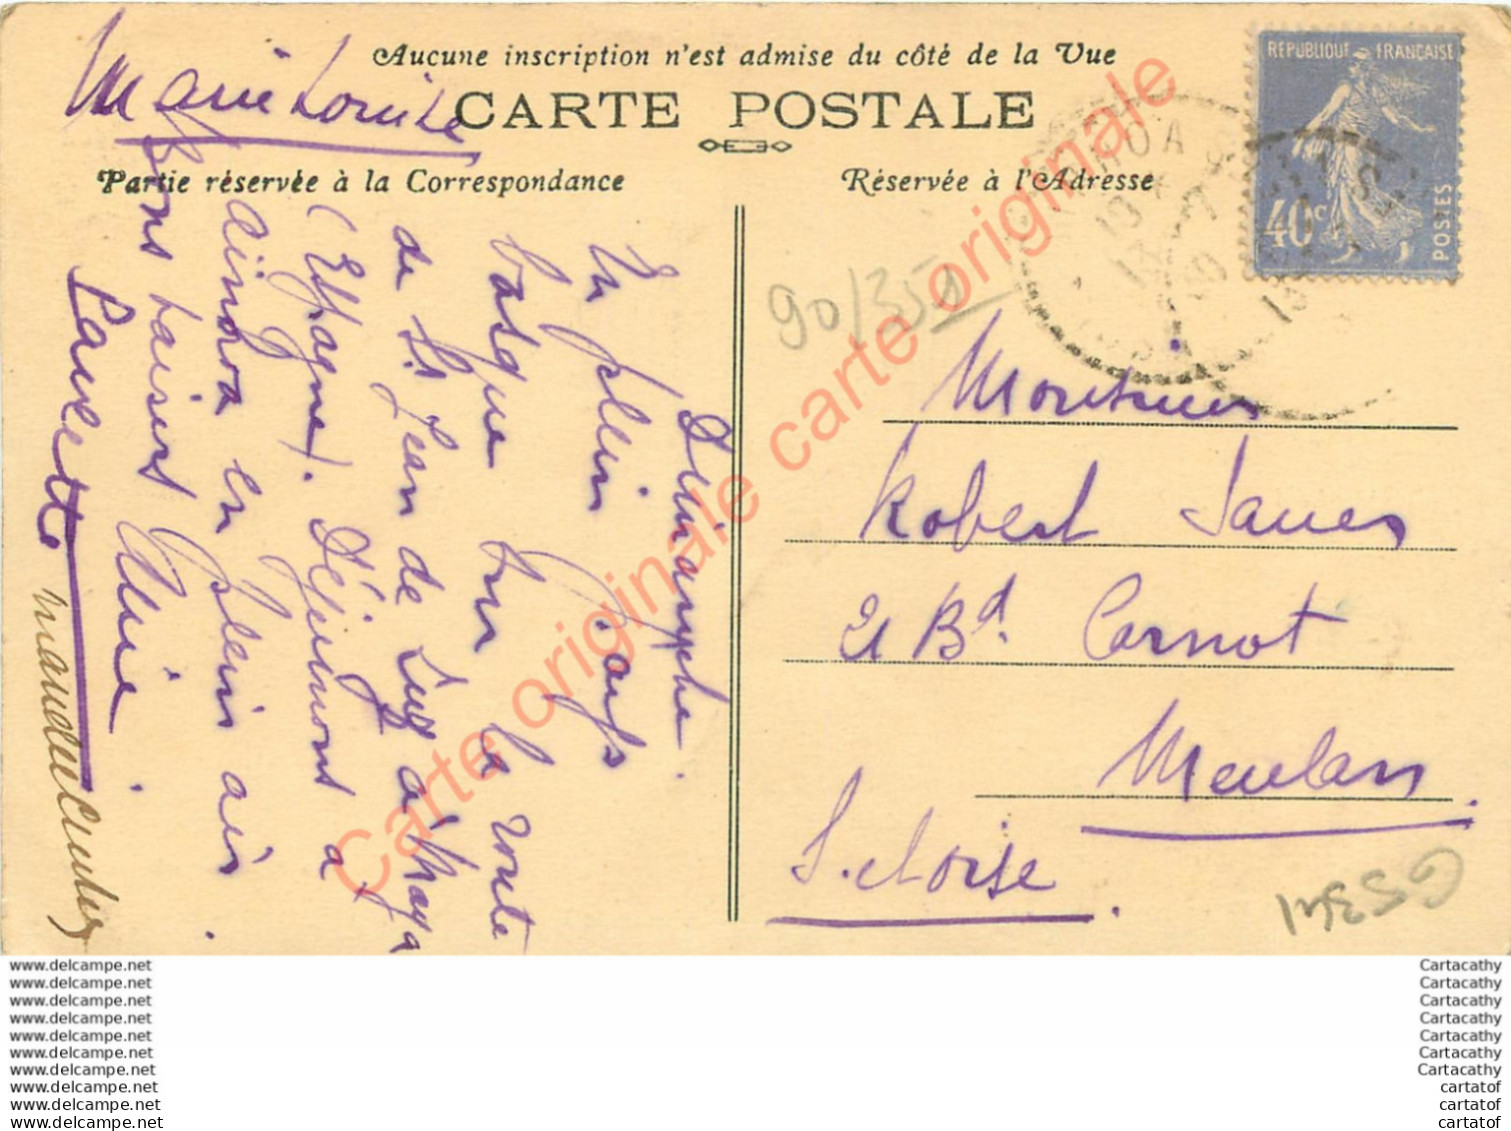 Aucune inscription n'est admise du côté de la Vue
CARTE POSTALE
Partie réservée à la Correspondance
Réservée à l'Adresse
REPUBLIQUE FRANCAISE
40c
POSTES
Marie Louise
Dimanche.
En plein Pays
basque sur la route
de St Jean de Luz à Maya
(Espagne). Déjeunons à
Aïnhoa en plein air.
Bons baisers Amie
Paulette
90/350
Monsieur
Robert Janes
Bd. Carnot
Meulan.
S. et Oise.
G5341
Carte originale carte originale
www.delcampe.net
www.delcampe.net
www.delcampe.net
www.delcampe.net
www.delcampe.net
www.delcampe.net
www.delcampe.net
www.delcampe.net
www.delcampe.net
www.delcampe.net
Cartacathy
Cartacathy
Cartacathy
Cartacathy
Cartacathy
Cartacathy
Cartacathy
cartatof
cartatof
cartatof